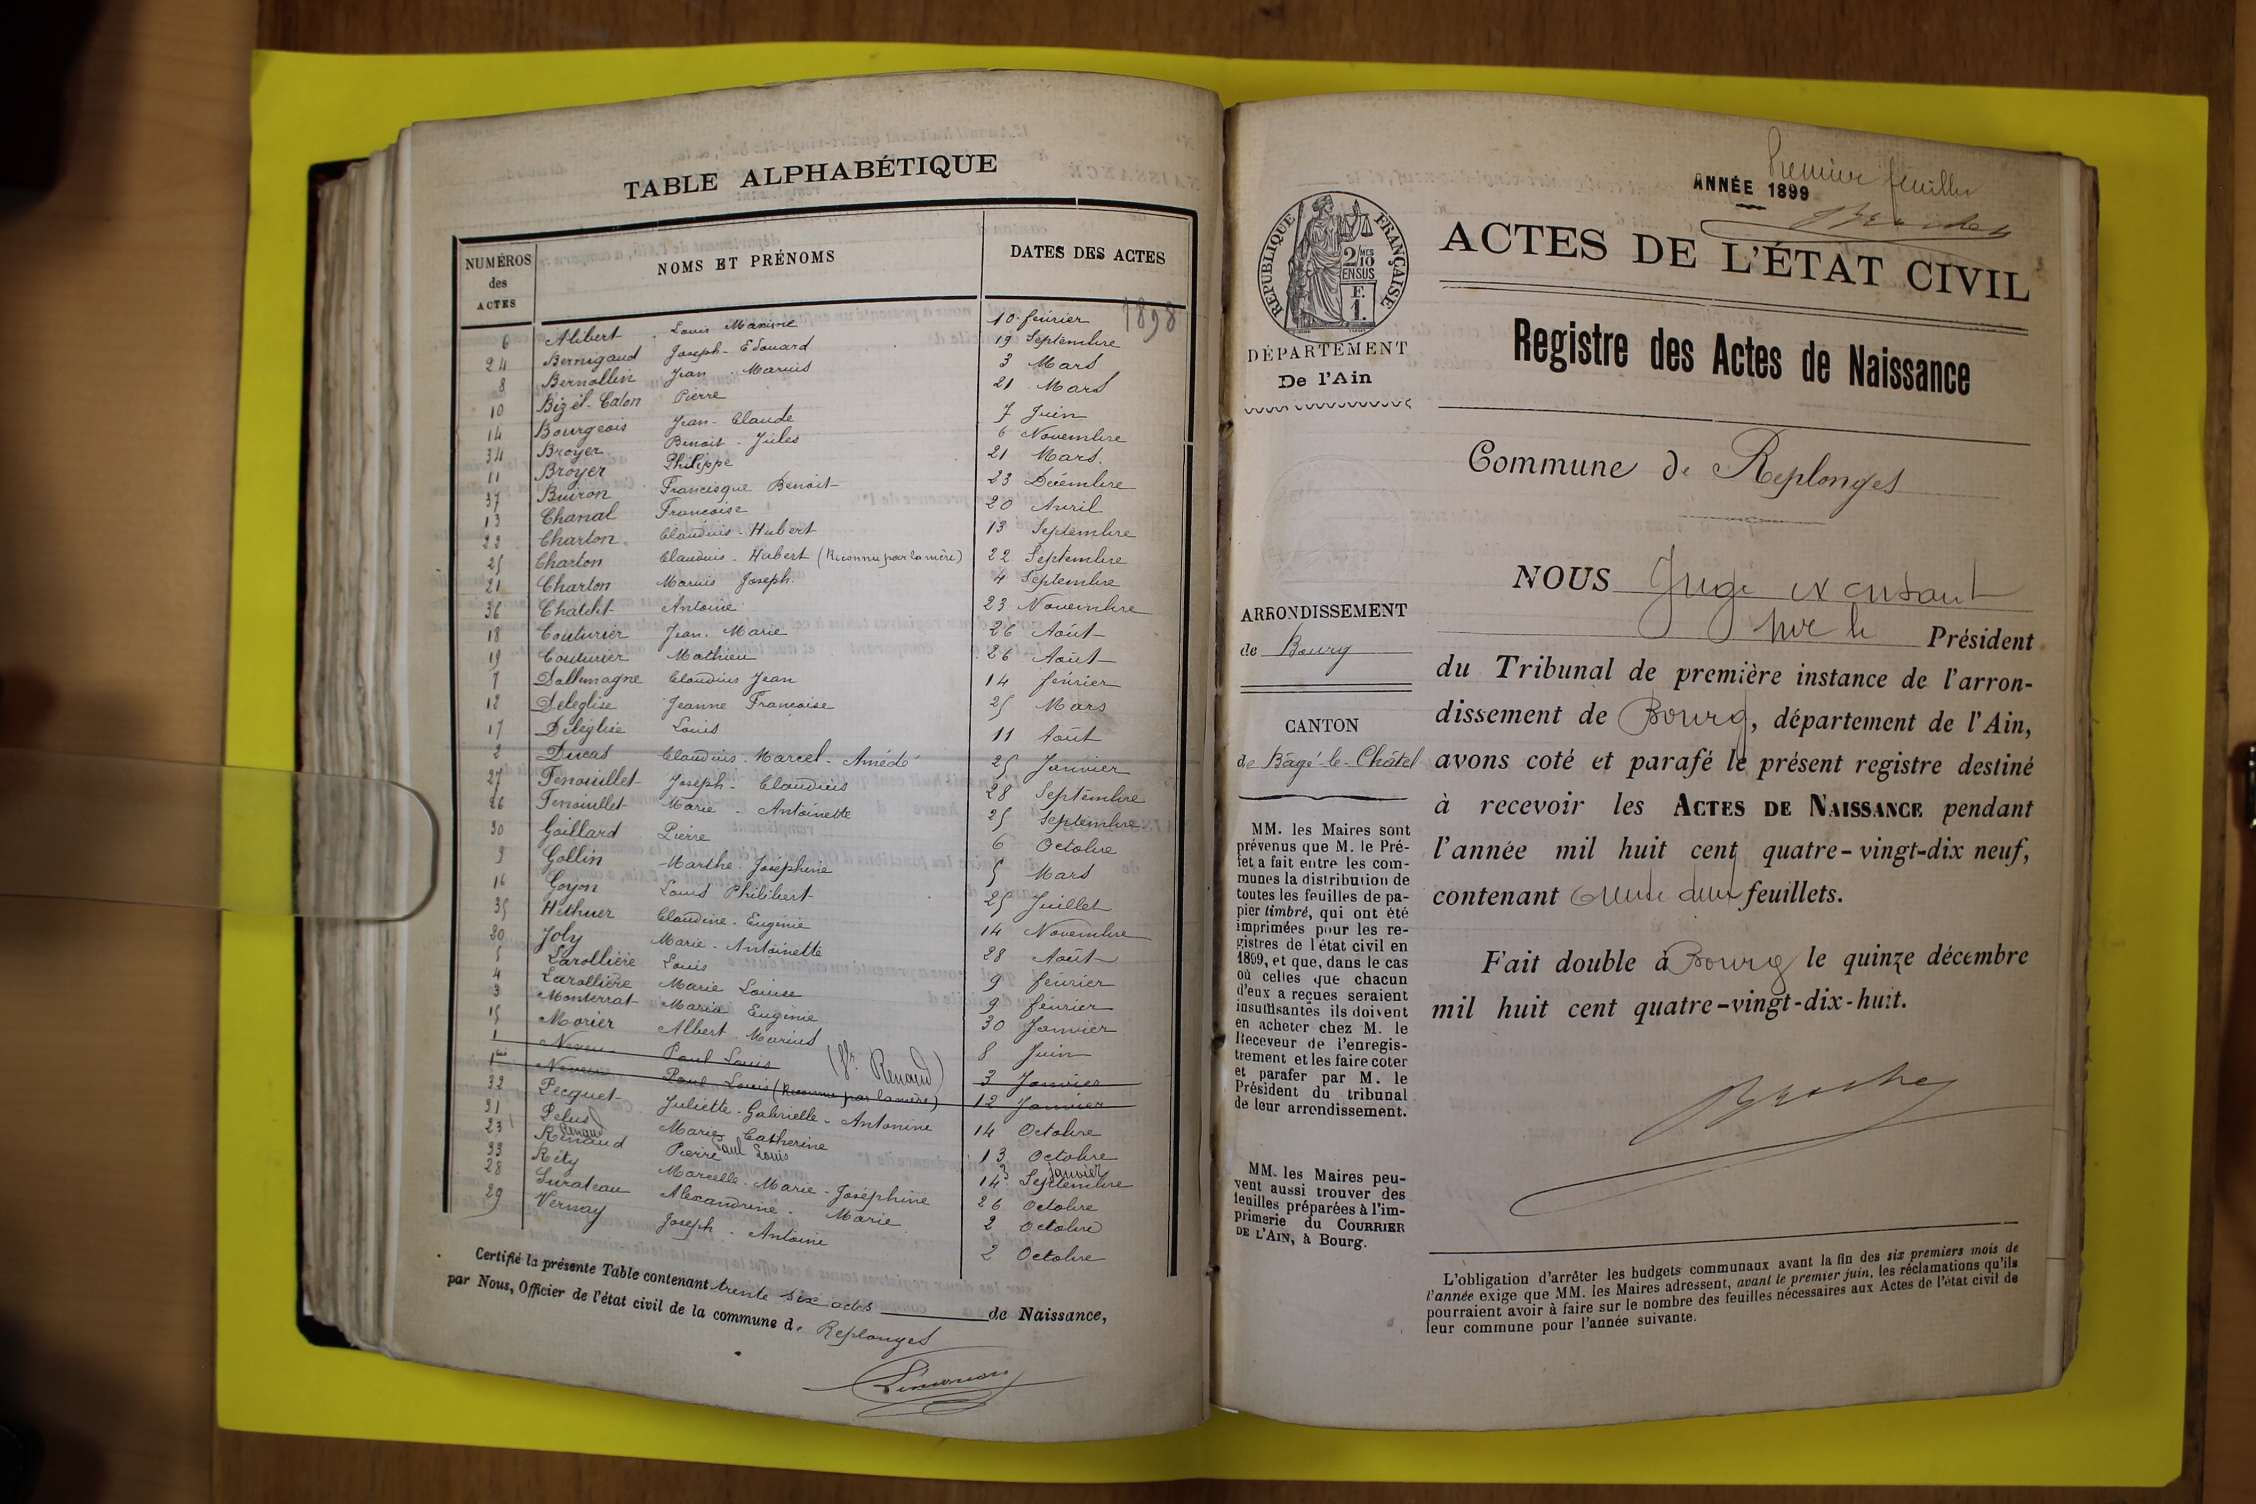 TABLE ALPHABÉTIQUE
NUMÉROS des ACTES
NOMS ET PRÉNOMS
DATES DES ACTES
1898
6 Alibert Louis Maxime 10 février
24 Bernigaud Joseph-Edouard 19 Septembre
8 Bernollin Jean Marius 3 Mars
10 Bizet-Calon Pierre 21 Mars
14 Bourgeois Jean-Claude 7 Juin
34 Broyer Benoit-Jules 6 Novembre
11 Broyer Philippe 21 Mars
37 Buiron Francisque Benoit 23 Décembre
13 Chanal Françoise 20 Avril
22 Charton Claudius-Hubert 13 Septembre
25 Charton Claudius-Hubert (Reconnu par la mère) 22 Septembre
21 Charton Marius Joseph 4 Septembre
36 Chatelet Antoine 23 Novembre
18 Couturier Jean-Marie 26 Août
19 Couturier Mathieu 26 Août
7 Dallemagne Claudius Jean 14 février
12 Deléglise Jeanne Françoise 25 Mars
17 Deléglise Louis 11 Août
2 Ducas Claudius-Marcel-Amédé 25 Janvier
27 Fenouillet Joseph-Claudius 28 Septembre
26 Fenouillet Marie-Antoinette 25 Septembre
30 Gaillard Pierre 6 Octobre
9 Gollin Marthe Joséphine 5 Mars
16 Goyon Louis Philibert 25 Juillet
35 Hethuer Claudine-Eugénie 14 Novembre
20 Joly Marie-Antoinette 28 Août
5 Larollière Louis 9 février
4 Larollière Marie Louise 9 février
3 Monterrat Maria Eugénie 30 Janvier
15 Morier Albert Marius 8 Juin
1 Neveu Paul Louis (Vr Renaud) 3 Janvier
1bis Neveu Paul Louis (Reconnu par la mère) 12 Janvier
32 Pecquet Juliette-Gabrielle-Antonine 14 Octobre
31 Pelus Marie Catherine 13 Octobre
Renaud Paul Louis 3 Janvier
23 Renaud Pierre 14 Septembre
33 Réty Marcelle-Marie-Joséphine 26 Octobre
28 Surateau Alexandrine-Marie 2 Octobre
29 Vernay Joseph-Antoine 2 Octobre
Certifié la présente Table contenant trente six actes de Naissance,
par Nous, Officier de l'état civil de la commune de Replonges
Premier feuillet
ANNÉE 1899
ACTES DE L'ÉTAT CIVIL
Registre des Actes de Naissance
Commune de Replonges
RÉPUBLIQUE FRANÇAISE
2/10 MES EN SUS
F. 1.
DÉPARTEMENT
De l'Ain
ARRONDISSEMENT
de Bourg
CANTON
de Bâgé-le-Châtel
MM. les Maires sont
prévenus que M. le Pré-
fet a fait entre les com-
munes la distribution de
toutes les feuilles de pa-
pier timbré, qui ont été
imprimées pour les re-
gistres de l'état civil en
1899, et que, dans le cas
où celles que chacun
d'eux a reçues seraient
insuffisantes ils doivent
en acheter chez M. le
Receveur de l'enregis-
trement et les faire coter
et parafer par M. le
Président du tribunal
de leur arrondissement.
MM. les Maires peu-
vent aussi trouver des
feuilles préparées à l'im-
primerie du COURRIER
DE L'AIN, à Bourg.
NOUS Juge excusant
pour le Président
du Tribunal de première instance de l'arron-
dissement de Bourg, département de l'Ain,
avons coté et parafé le présent registre destiné
à recevoir les ACTES DE NAISSANCE pendant
l'année mil huit cent quatre-vingt-dix neuf,
contenant trente deux feuillets.
Fait double à Bourg le quinze décembre
mil huit cent quatre-vingt-dix-huit.
L'obligation d'arrêter les budgets communaux avant la fin des six premiers mois de
l'année exige que MM. les Maires adressent, avant le premier juin, les réclamations qu'ils
pourraient avoir à faire sur le nombre des feuilles nécessaires aux Actes de l'état civil de
leur commune pour l'année suivante.